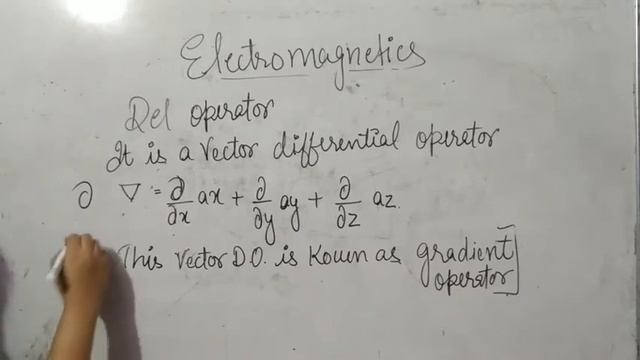 Electromagnetics
Del operator
It is a vector differential operator
∂ ∇ = ∂/∂x ax + ∂/∂y ay + ∂/∂z az.
This vector D.O. is Kouun as gradient
operator